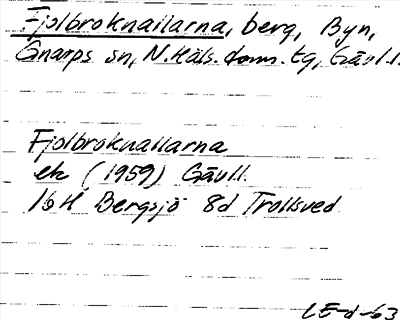 Fjolbroknallarna, berg, Byn,
Gnarps sn, N.Häls. dom. tg, Gävl.l.
Fjolbroknallarna
ek (1959) Gävll.
16H Bergsjö 8d Trollsved
LE-d-63